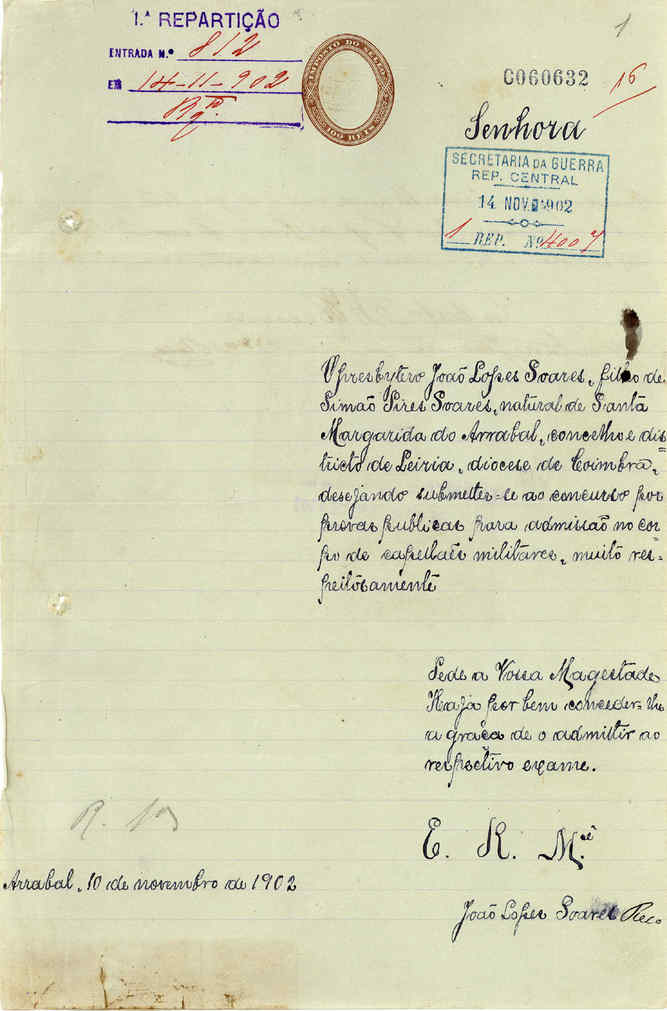 1
1.ª REPARTIÇÃO
ENTRADA N.º 812
EM 14-11-902
IMPOSTO DO SELLO
100 REIS
C060632
16
Senhora
SECRETARIA DA GUERRA
REP. CENTRAL
14 NOV. 902
1 REP. Nº 4007
O presbytero João Lopes Soares, filho de
Simão Pires Soares, natural de Santa
Margarida do Arrabal, concelho e dis=
tricto de Leiria, diocese de Coimbra,
desejando submetter-se ao concurso por
provas publicas para admissão no cor
po de capellães militares, muito res=
peitosamente
Pede a Vossa Magestade
Haja por bem conceder-lhe
a graça de o admittir ao
respectivo exame.
E. R. M.cê
Arrabal, 10 de novembro de 1902
João Lopes Soares